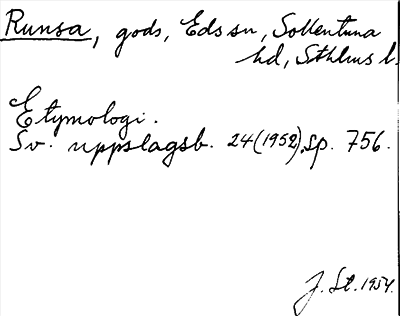 Runsa, gods, Eds sn, Sollentuna
hd, Sthlms l.
Etymologi.
Sv. uppslagsb. 24(1952), sp. 756.
J. St. 1954.